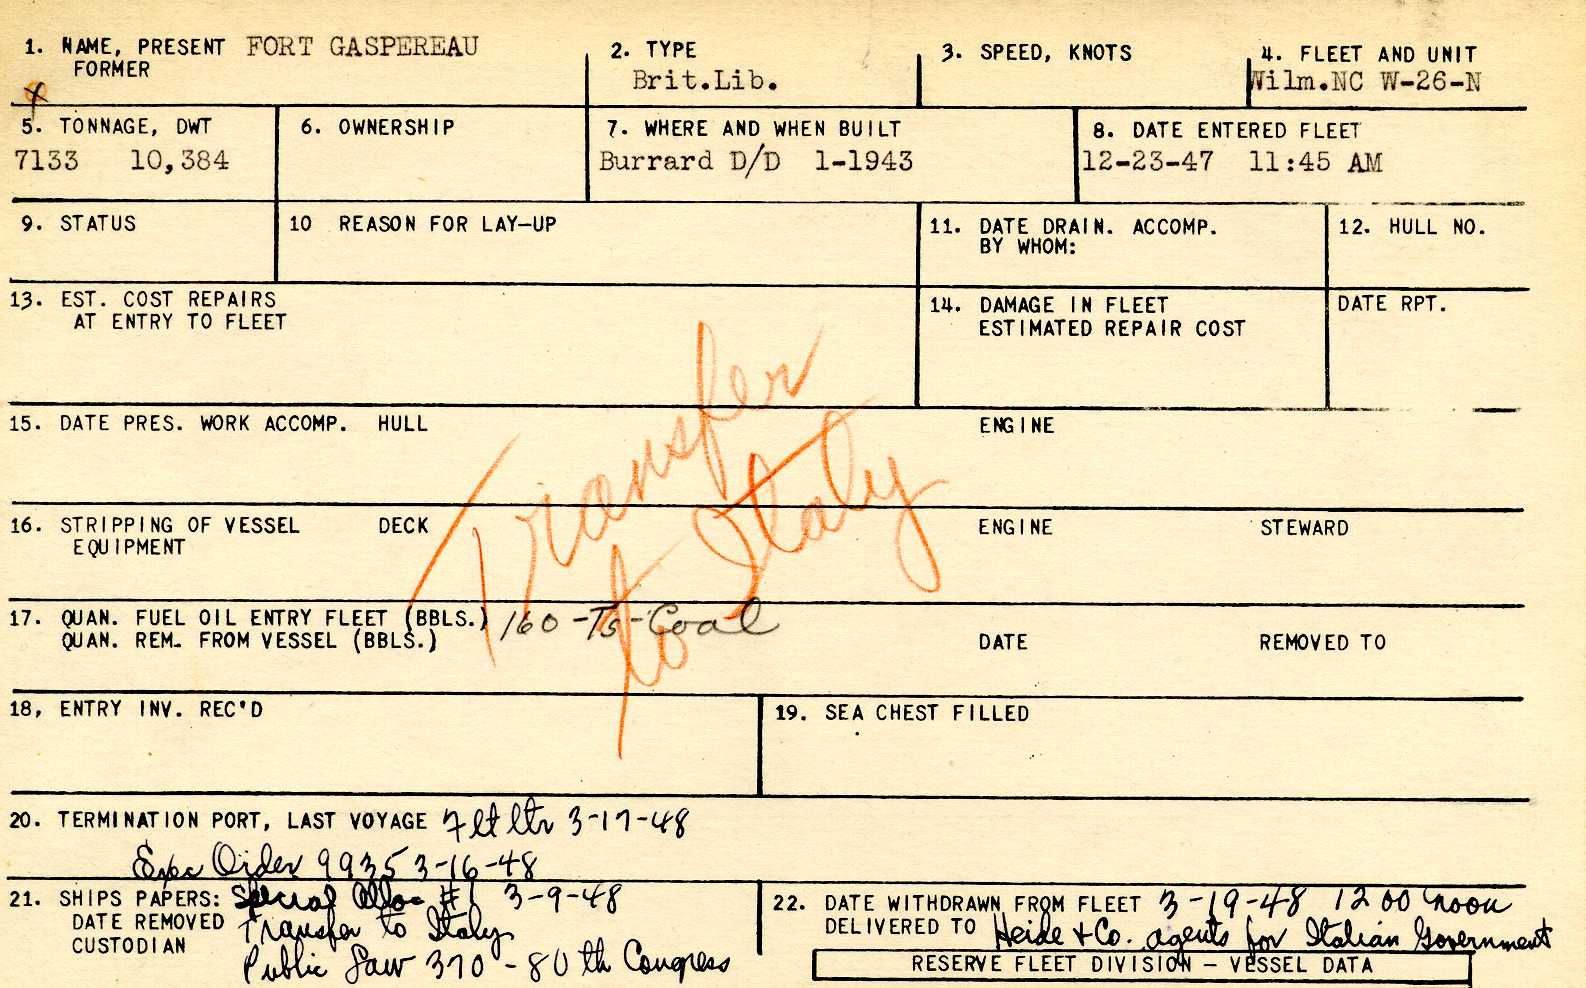 1. NAME, PRESENT FORT GASPEREAU
FORMER
2. TYPE
Brit.Lib.
3. SPEED, KNOTS
4. FLEET AND UNIT
Wilm.NC W-26-N
5. TONNAGE, DWT
7133 10,384
6. OWNERSHIP
7. WHERE AND WHEN BUILT
Burrard D/D 1-1943
8. DATE ENTERED FLEET
12-23-47 11:45 AM
9. STATUS
10 REASON FOR LAY-UP
11. DATE DRAIN. ACCOMP.
BY WHOM:
12. HULL NO.
13. EST. COST REPAIRS
AT ENTRY TO FLEET
14. DAMAGE IN FLEET
ESTIMATED REPAIR COST
DATE RPT.
Transfer
to Italy
15. DATE PRES. WORK ACCOMP. HULL
ENGINE
16. STRIPPING OF VESSEL DECK
EQUIPMENT
ENGINE
STEWARD
17. QUAN. FUEL OIL ENTRY FLEET (BBLS.) 160-Ts-Coal
QUAN. REM. FROM VESSEL (BBLS.)
DATE
REMOVED TO
18, ENTRY INV. REC'D
19. SEA CHEST FILLED
20. TERMINATION PORT, LAST VOYAGE Flt ltr 3-17-48
Exec Order 9935 3-16-48
21. SHIPS PAPERS: Special Alloc #1 3-9-48
DATE REMOVED Transfer to Italy
CUSTODIAN Public Law 370-80th Congress
22. DATE WITHDRAWN FROM FLEET 3-19-48 1200 noon
DELIVERED TO Heide & Co. agents for Italian Government
RESERVE FLEET DIVISION – VESSEL DATA